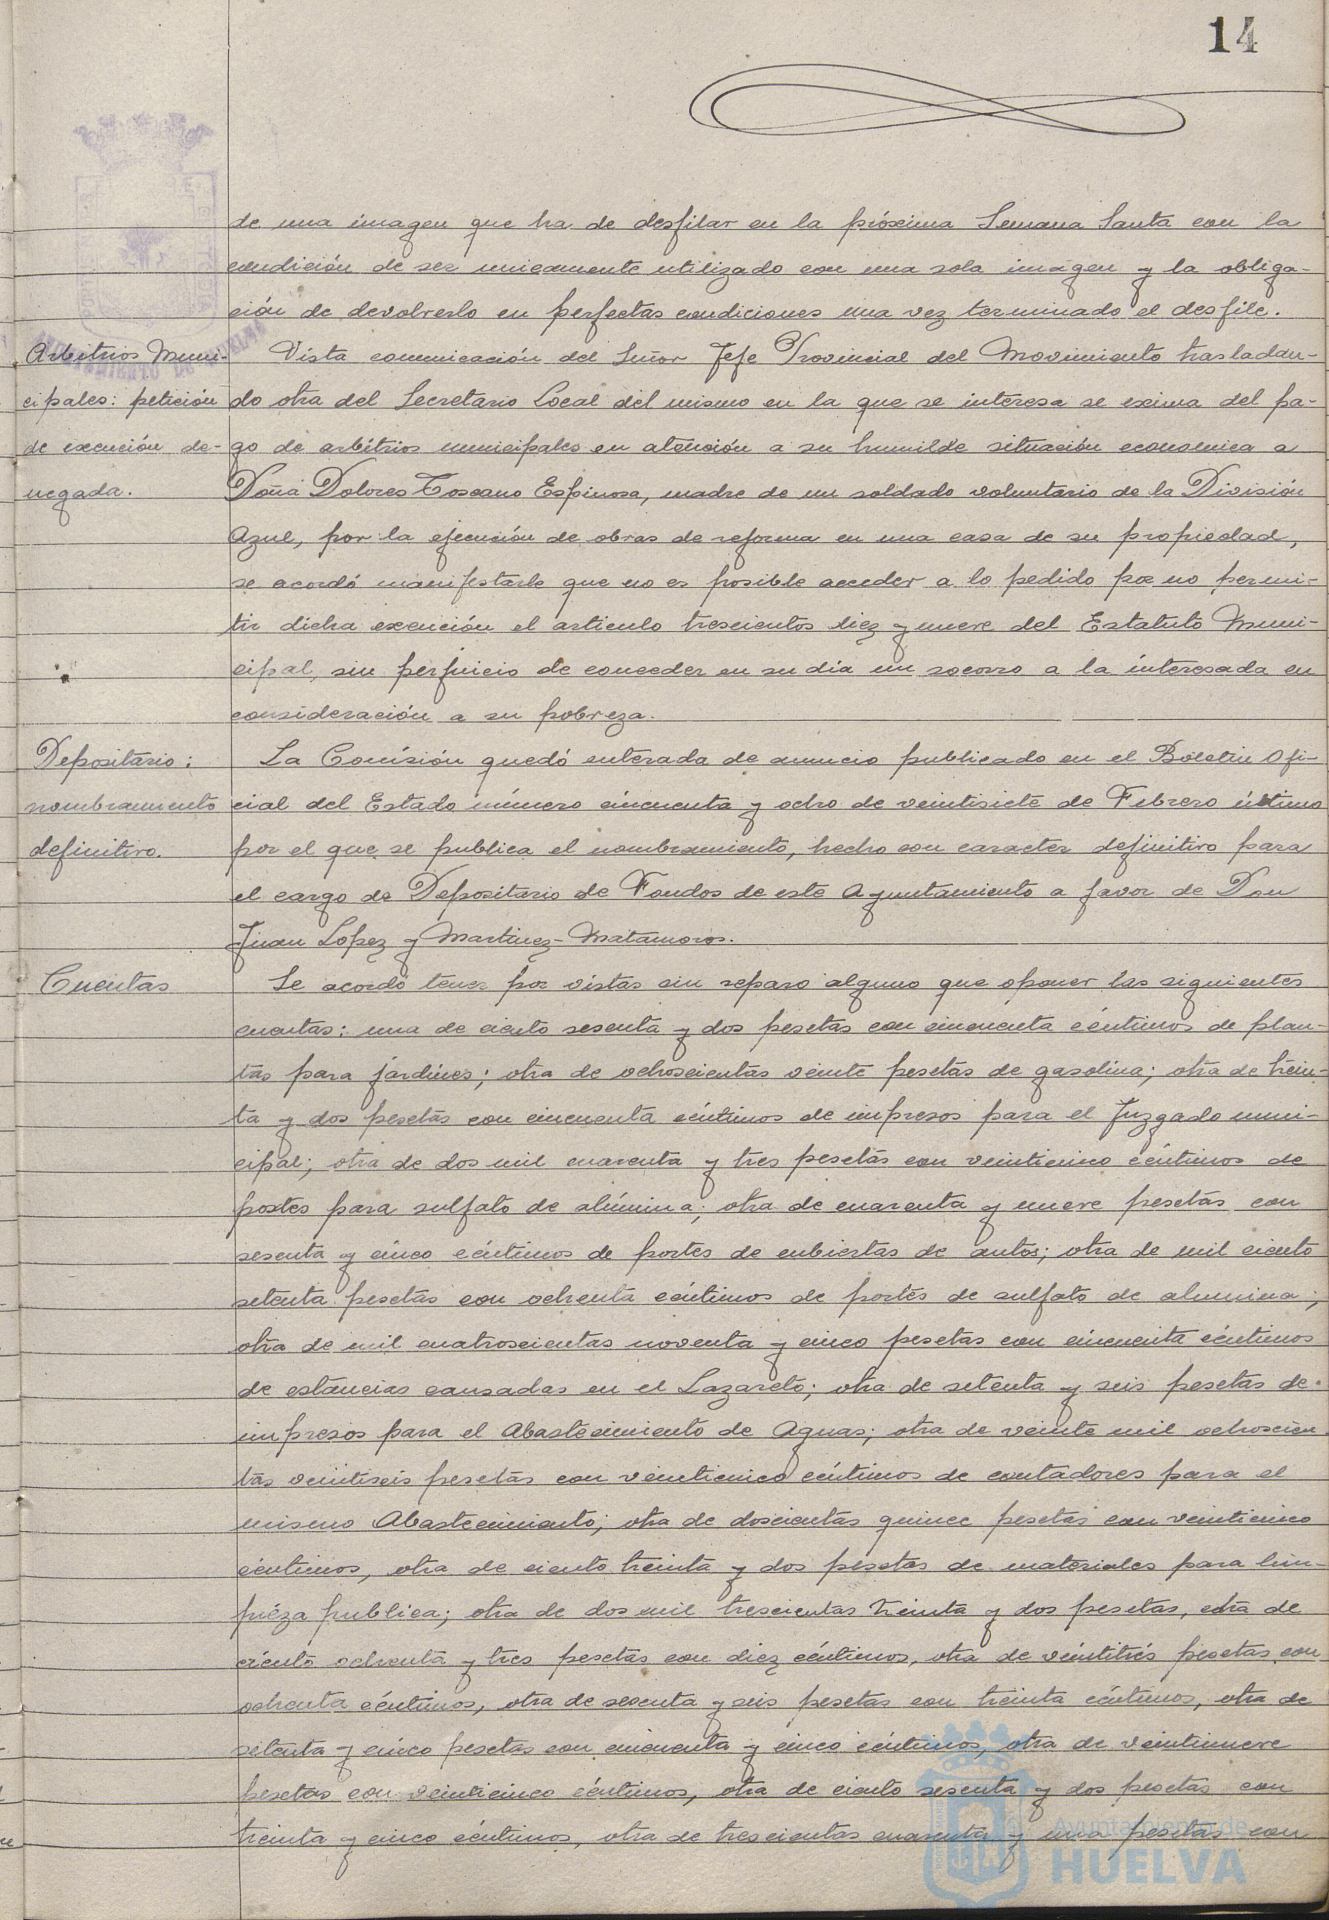 14
de una imagen que ha de desfilar en la próxima Semana Santa con la
condición de ser unicamente utilizado con una sola imagen y la obliga-
ción de devolverlo en perfectas condiciones una vez terminado el desfile.
Arbitrios Muni-
cipales: petición
de exención de-
negada.
Vista comunicación del Señor Jefe Provincial del Movimiento trasladan-
do otra del Secretario Local del mismo en la que se interesa se exima del pa-
go de arbítrios municipales en atención a su humilde situación economica a
Doña Dolores Toscano Espinosa, madre de un soldado voluntario de la División
Azul, por la ejecución de obras de reforma en una casa de su propiedad,
se acordó manifestarle que no es posible acceder a lo pedido por no permi-
tir dicha exención el articulo trescientos diez y nueve del Estatuto Muni-
cipal, sin perjuicio de conceder en su dia un socorro a la interesada en
consideración a su pobreza.
Depositario:
nombramiento
definitivo.
La Comisión quedó enterada de anuncio publicado en el Boletin Ofi-
cial del Estado número cincuenta y ocho de veintisiete de Febrero último
por el que se publica el nombramiento, hecho con caracter definitivo para
el cargo de Depositario de Fondos de este Ayuntamiento a favor de Don
Juan Lopez y Martinez-Matamoros.
Cuentas
Se acordó tener por vistas sin reparo alguno que oponer las siguientes
cuentas: una de ciento sesenta y dos pesetas con cincuenta céntimos de plan-
tas para jardines; otra de ochoscientas veinte pesetas de gasolina; otra de trein-
ta y dos pesetas con cincuenta céntimos de impresos para el Juzgado muni-
cipal; otra de dos mil cuarenta y tres pesetas con veinticinco céntimos de
portes para sulfato de alúmina; otra de cuarenta y nueve pesetas con
sesenta y cinco céntimos de portes de cubiertas de autos; otra de mil ciento
setenta pesetas con ochenta céntimos de portes de sulfato de alumina;
otra de mil cuatroscientas noventa y cinco pesetas con cincuenta céntimos
de estancias causadas en el Lazareto; otra de setenta y seis pesetas de
impresos para el Abastecimiento de Aguas; otra de veinte mil ochoscien
tas veintiseis pesetas con veinticinco céntimos de contadores para el
mismo Abastecimiento; otra de doscientas quince pesetas con veinticinco
céntimos, otra de ciento treinta y dos pesetas de materiales para lim-
pieza publica; otra de dos mil trescientas treinta y dos pesetas, otra de
ciento ochenta y tres pesetas con diez céntimos, otra de veintitrés pesetas con
ochenta céntimos, otra de sesenta y seis pesetas con treinta céntimos, otra de
setenta y cinco pesetas con cincuenta y cinco céntimos, otra de veintinueve
pesetas con veinticinco céntimos, otra de ciento sesenta y dos pesetas con
treinta y cinco céntimos, otra de trescientas cuarenta y una pesetas con
Ayuntamiento de
HUELVA